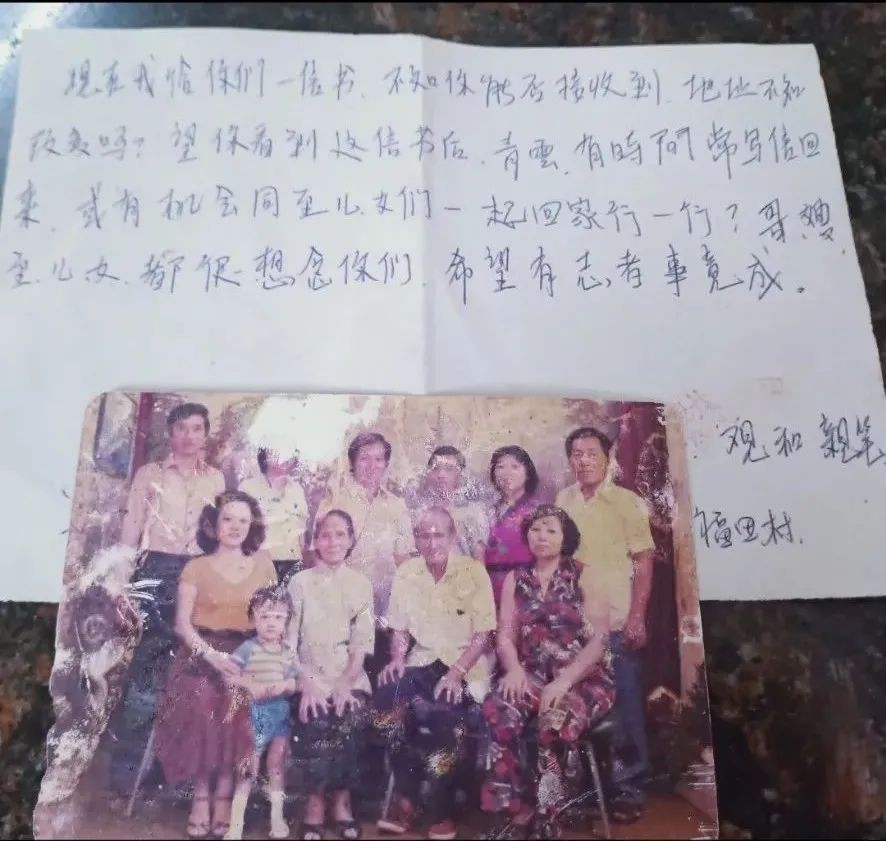 现在我给你们一信书、不知你能否接收到、地址不知
改变吗？望你看到这信书后、青雲、有時间常写信回
来、或有机会同至儿女们一起回家行一行？哥、嫂
至儿女、都很想念你们、希望有志者事竟成。
观和 親笔
福田村.